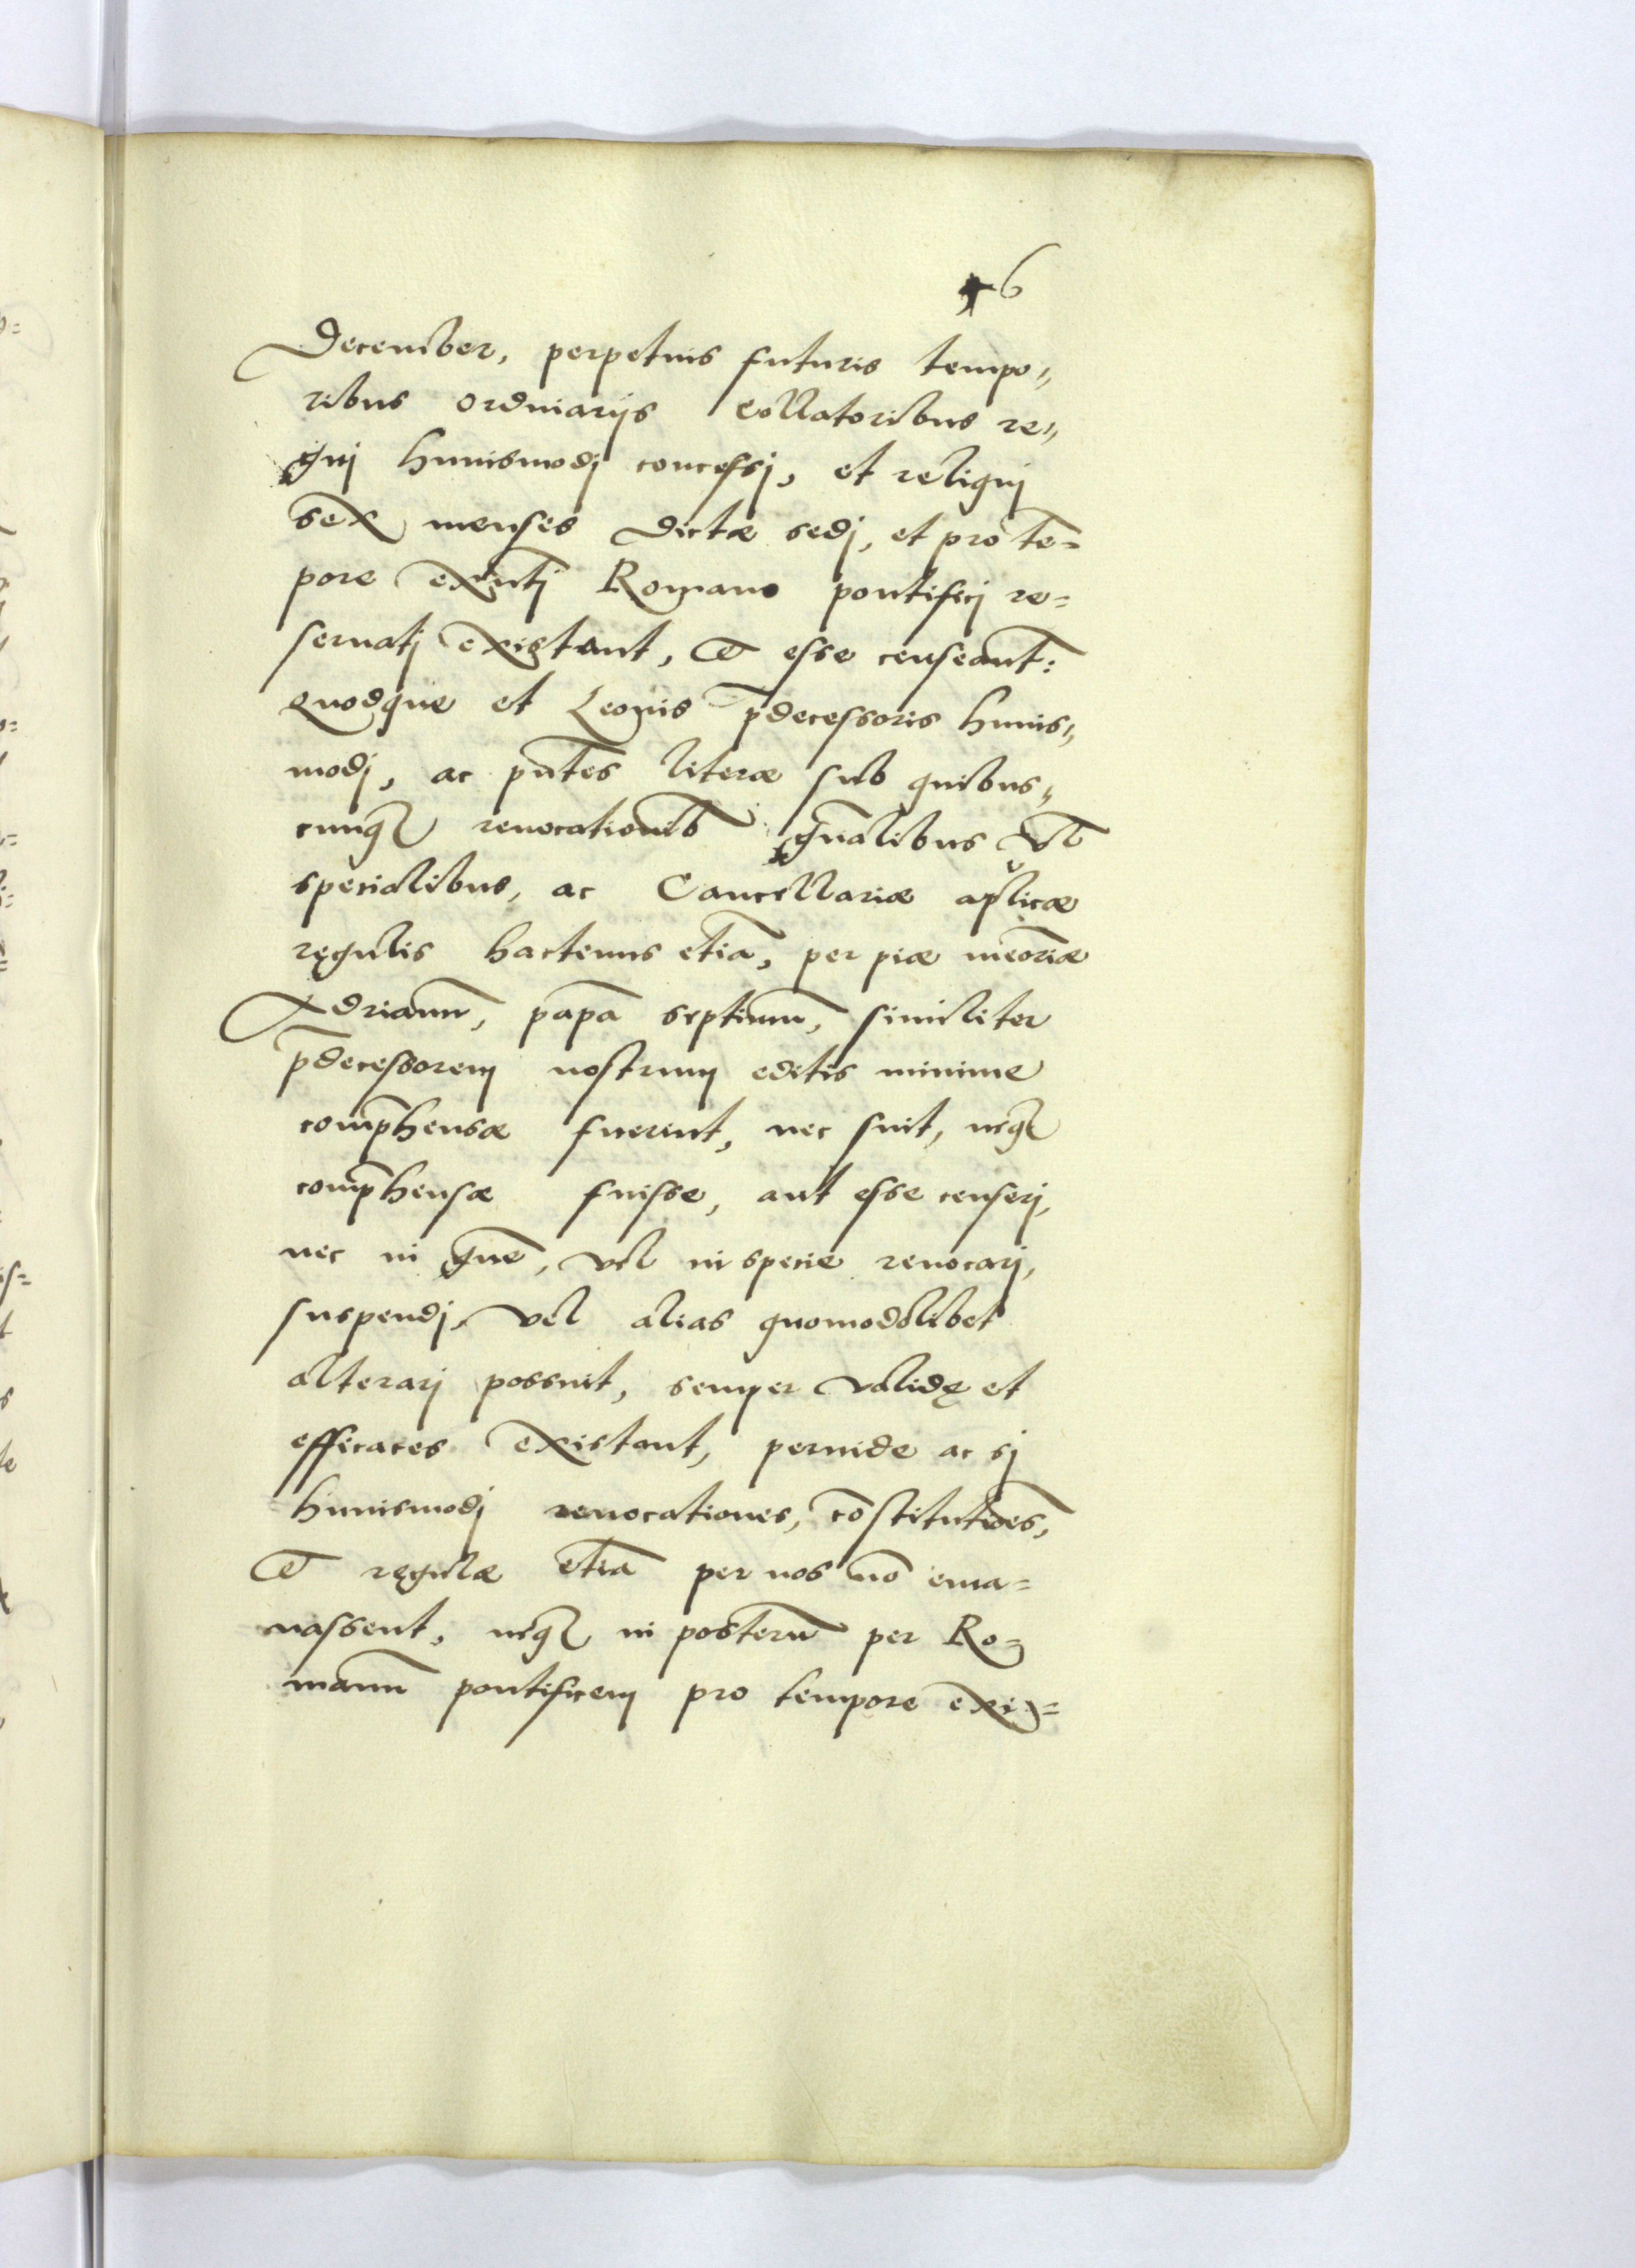 6
December, perpetuis futuris tempo„
ribus ordinarijs Collatoribus re„
gnj huiusmodj concessj, et reliquj
sex menses dictæ sedj, et pro te=
pore exñtj Romano pontificj re=
seruatj existant, et esse censeant:
quodque et Leonis p̄decessoris huius„
modj, ac pñtes literæ sub quibus„
cunq̃ reuocationib gñalibus vl̃
specialibus, ac Cancellariæ aplicæ
regulis hactenus etiā, per piæ meōriæ
Adrianū, papā septimū, similiter
p̄decessorem nostrum editis minime
comp̄hensæ fuerint, nec sint, neq̃
comp̄hensæ fuisse, aut esse censerj,
nec in gñe, vel in specie reuocarj,
suspendj, vel alias quomodolibet
alterarj possint, semper validę et
efficaces existant, perinde ac sj
huiusmodj reuocationes, cōstitutiōes,
et regulæ etiā per nos nō ema=
nassent, neq̃ in posterū per Ro=
manū pontificem pro tempore exis=